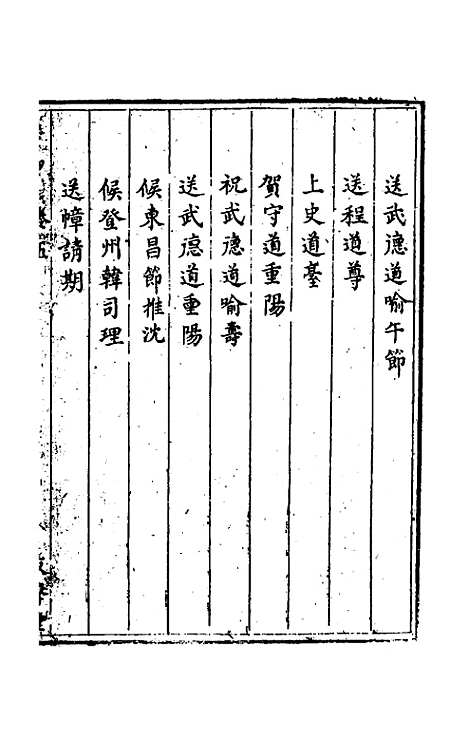 送武德道喻午節
送程道尊
上史道臺
賀守道重陽
祝武德道喻壽
送武德道重陽
候東昌節推沈
候登州韓司理
送幛請期